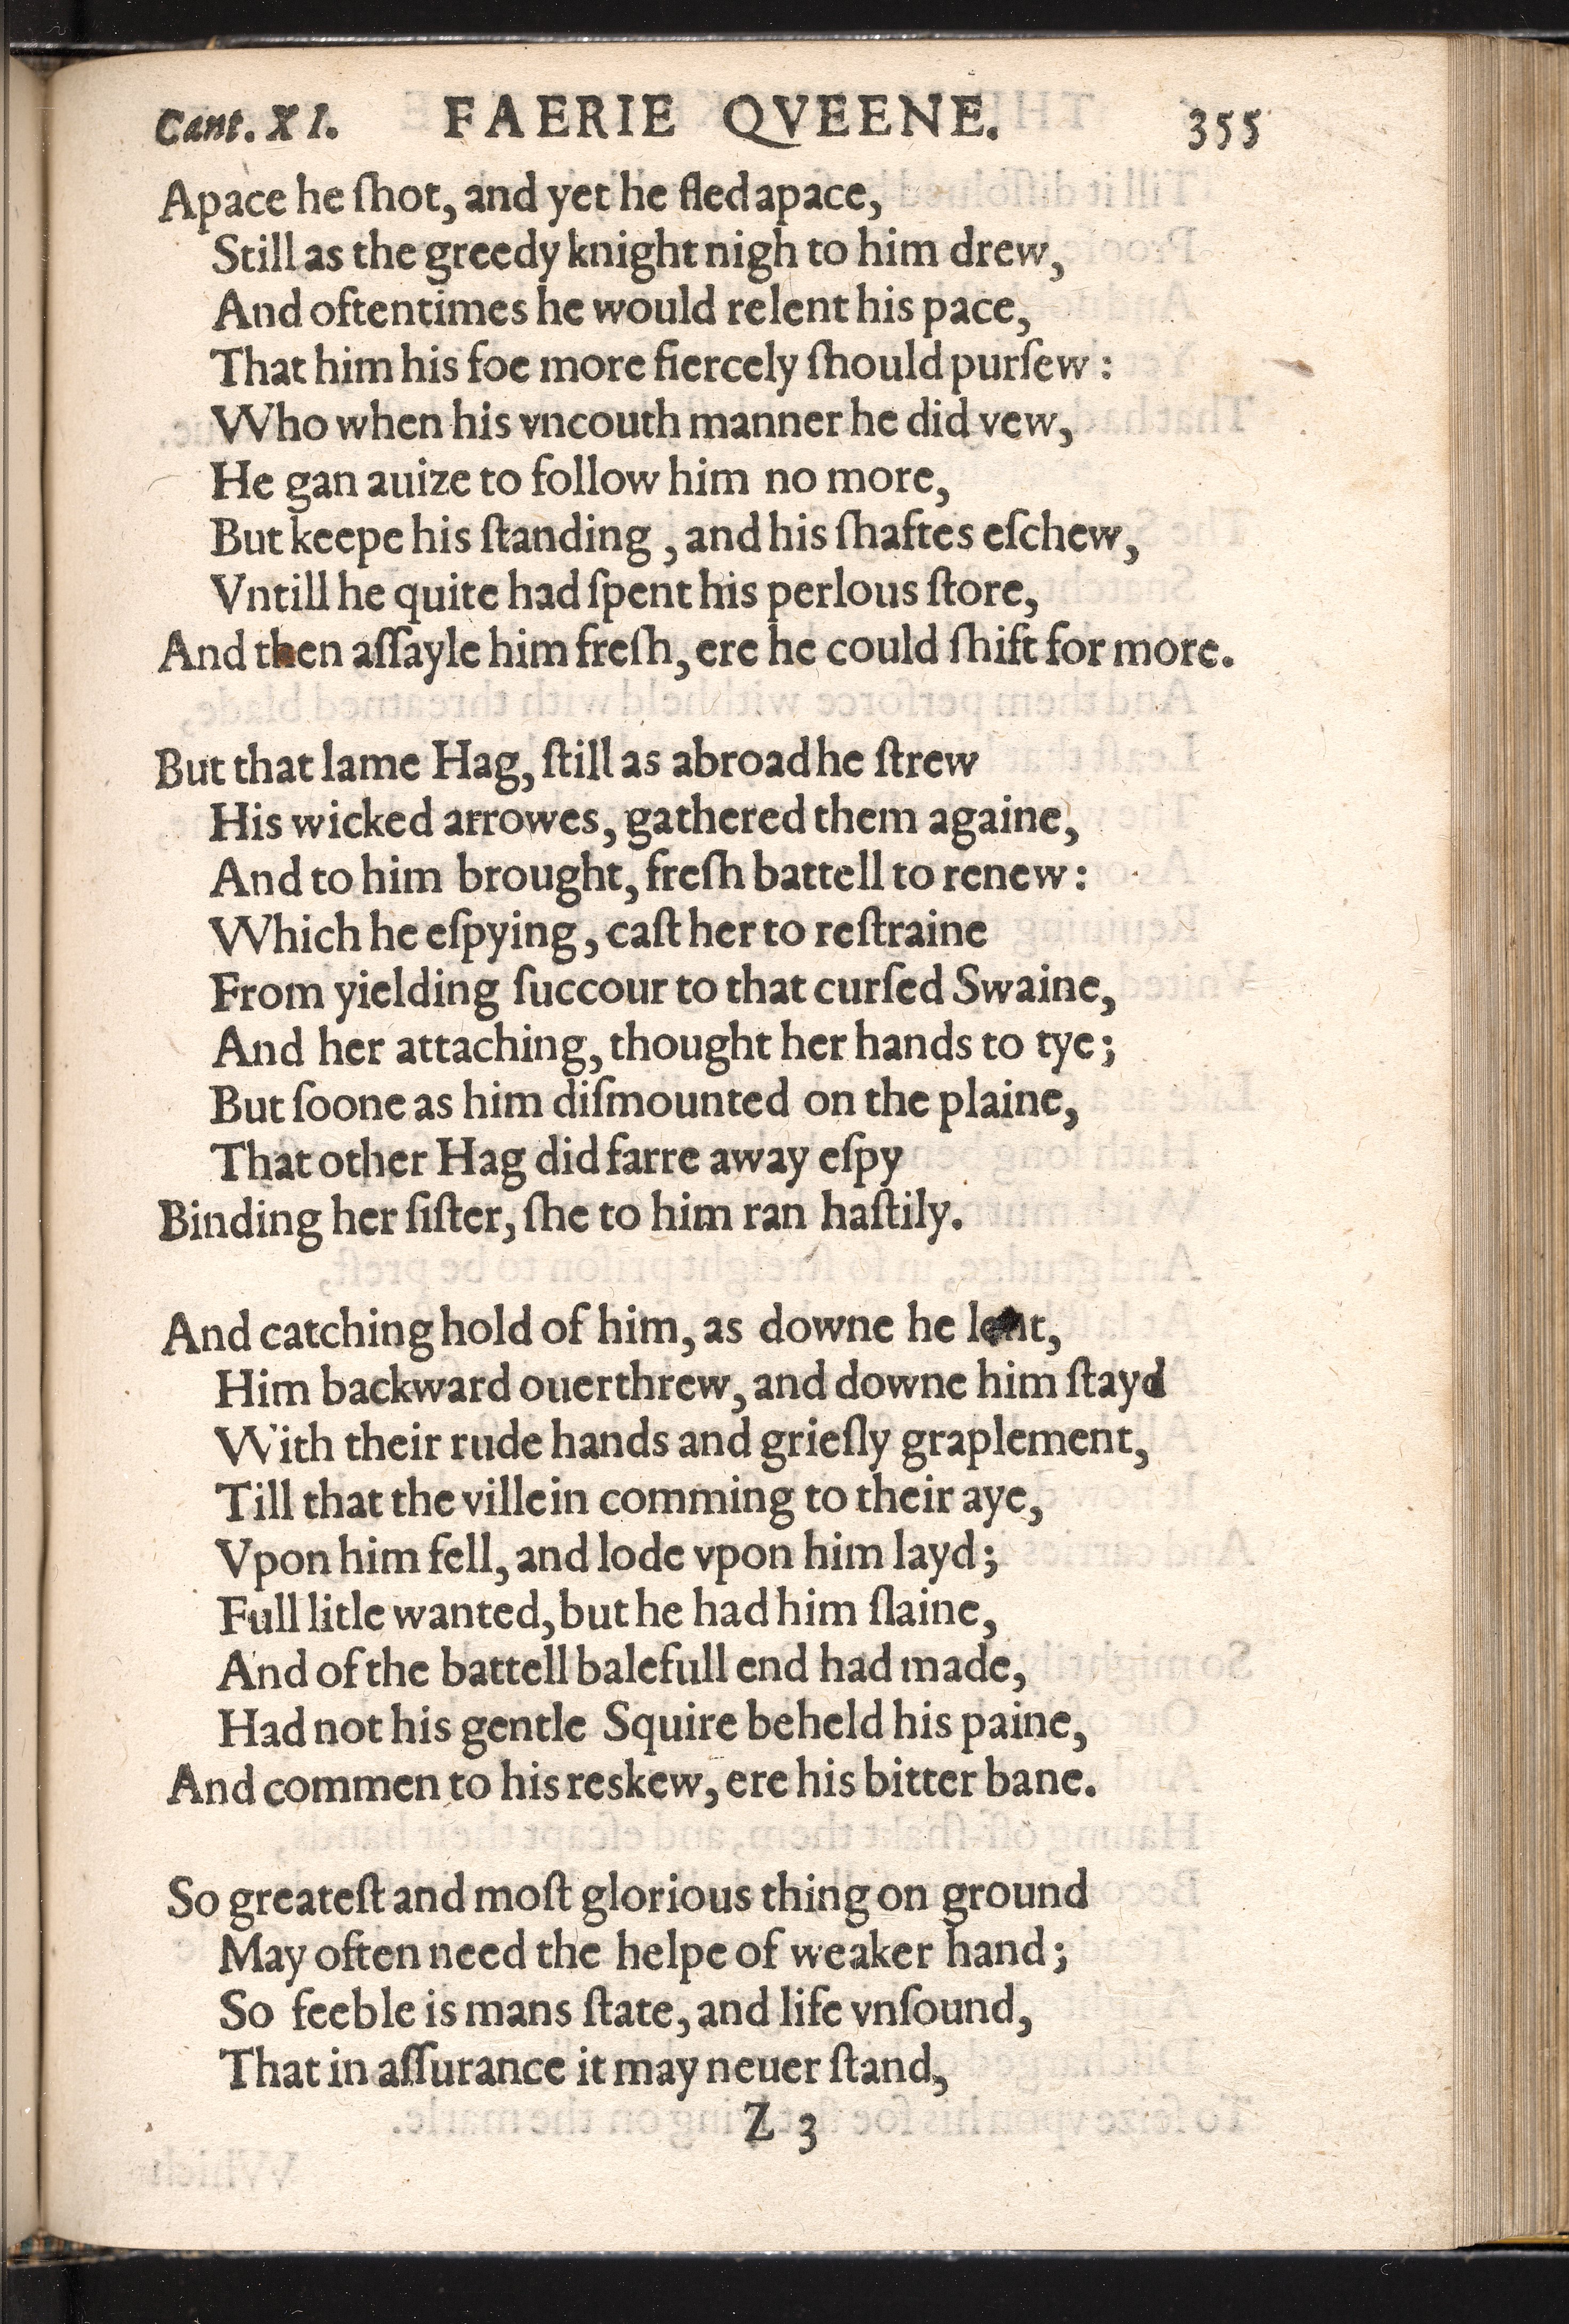 Cant. X I. FAERIE QVEENE. 355
Apace he ſhot, and yet he fled apace,
Still as the greedy knight nigh to him drew,
And oftentimes he would relent his pace,
That him his foe more fiercely ſhould purſew:
Who when his vncouth manner he did vew,
He gan auize to follow him no more,
But keepe his ſtanding, and his ſhaftes eſchew,
Vntill he quite had ſpent his perlous ſtore,
And then aſſayle him freſh, ere he could ſhift for more.
But that lame Hag, ſtill as abroad he ſtrew
His wicked arrowes, gathered them againe,
And to him brought, freſh battell to renew:
Which he eſpying, caſt her to reſtraine
From yielding ſuccour to that curſed Swaine,
And her attaching, thought her hands to tye;
But ſoone as him diſmounted on the plaine,
That other Hag did farre away eſpy
Binding her ſiſter, ſhe to him ran haſtily.
And catching hold of him, as downe he lent,
Him backward ouerthrew, and downe him ſtayd
With their rude hands and grieſly graplement,
Till that the villein comming to their aye,
Vpon him fell, and lode vpon him layd;
Full litle wanted, but he had him ſlaine,
And of the battell balefull end had made,
Had not his gentle Squire beheld his paine,
And commen to his reskew, ere his bitter bane.
So greateſt and moſt glorious thing on ground
May often need the helpe of weaker hand;
So feeble is mans ſtate, and life vnſound,
That in aſſurance it may neuer ſtand,
Z 3